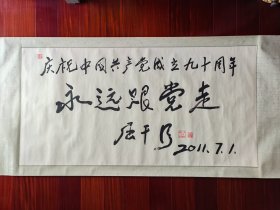 庆祝中国共产党成立九十周年
永远跟党走
2011.7.1.